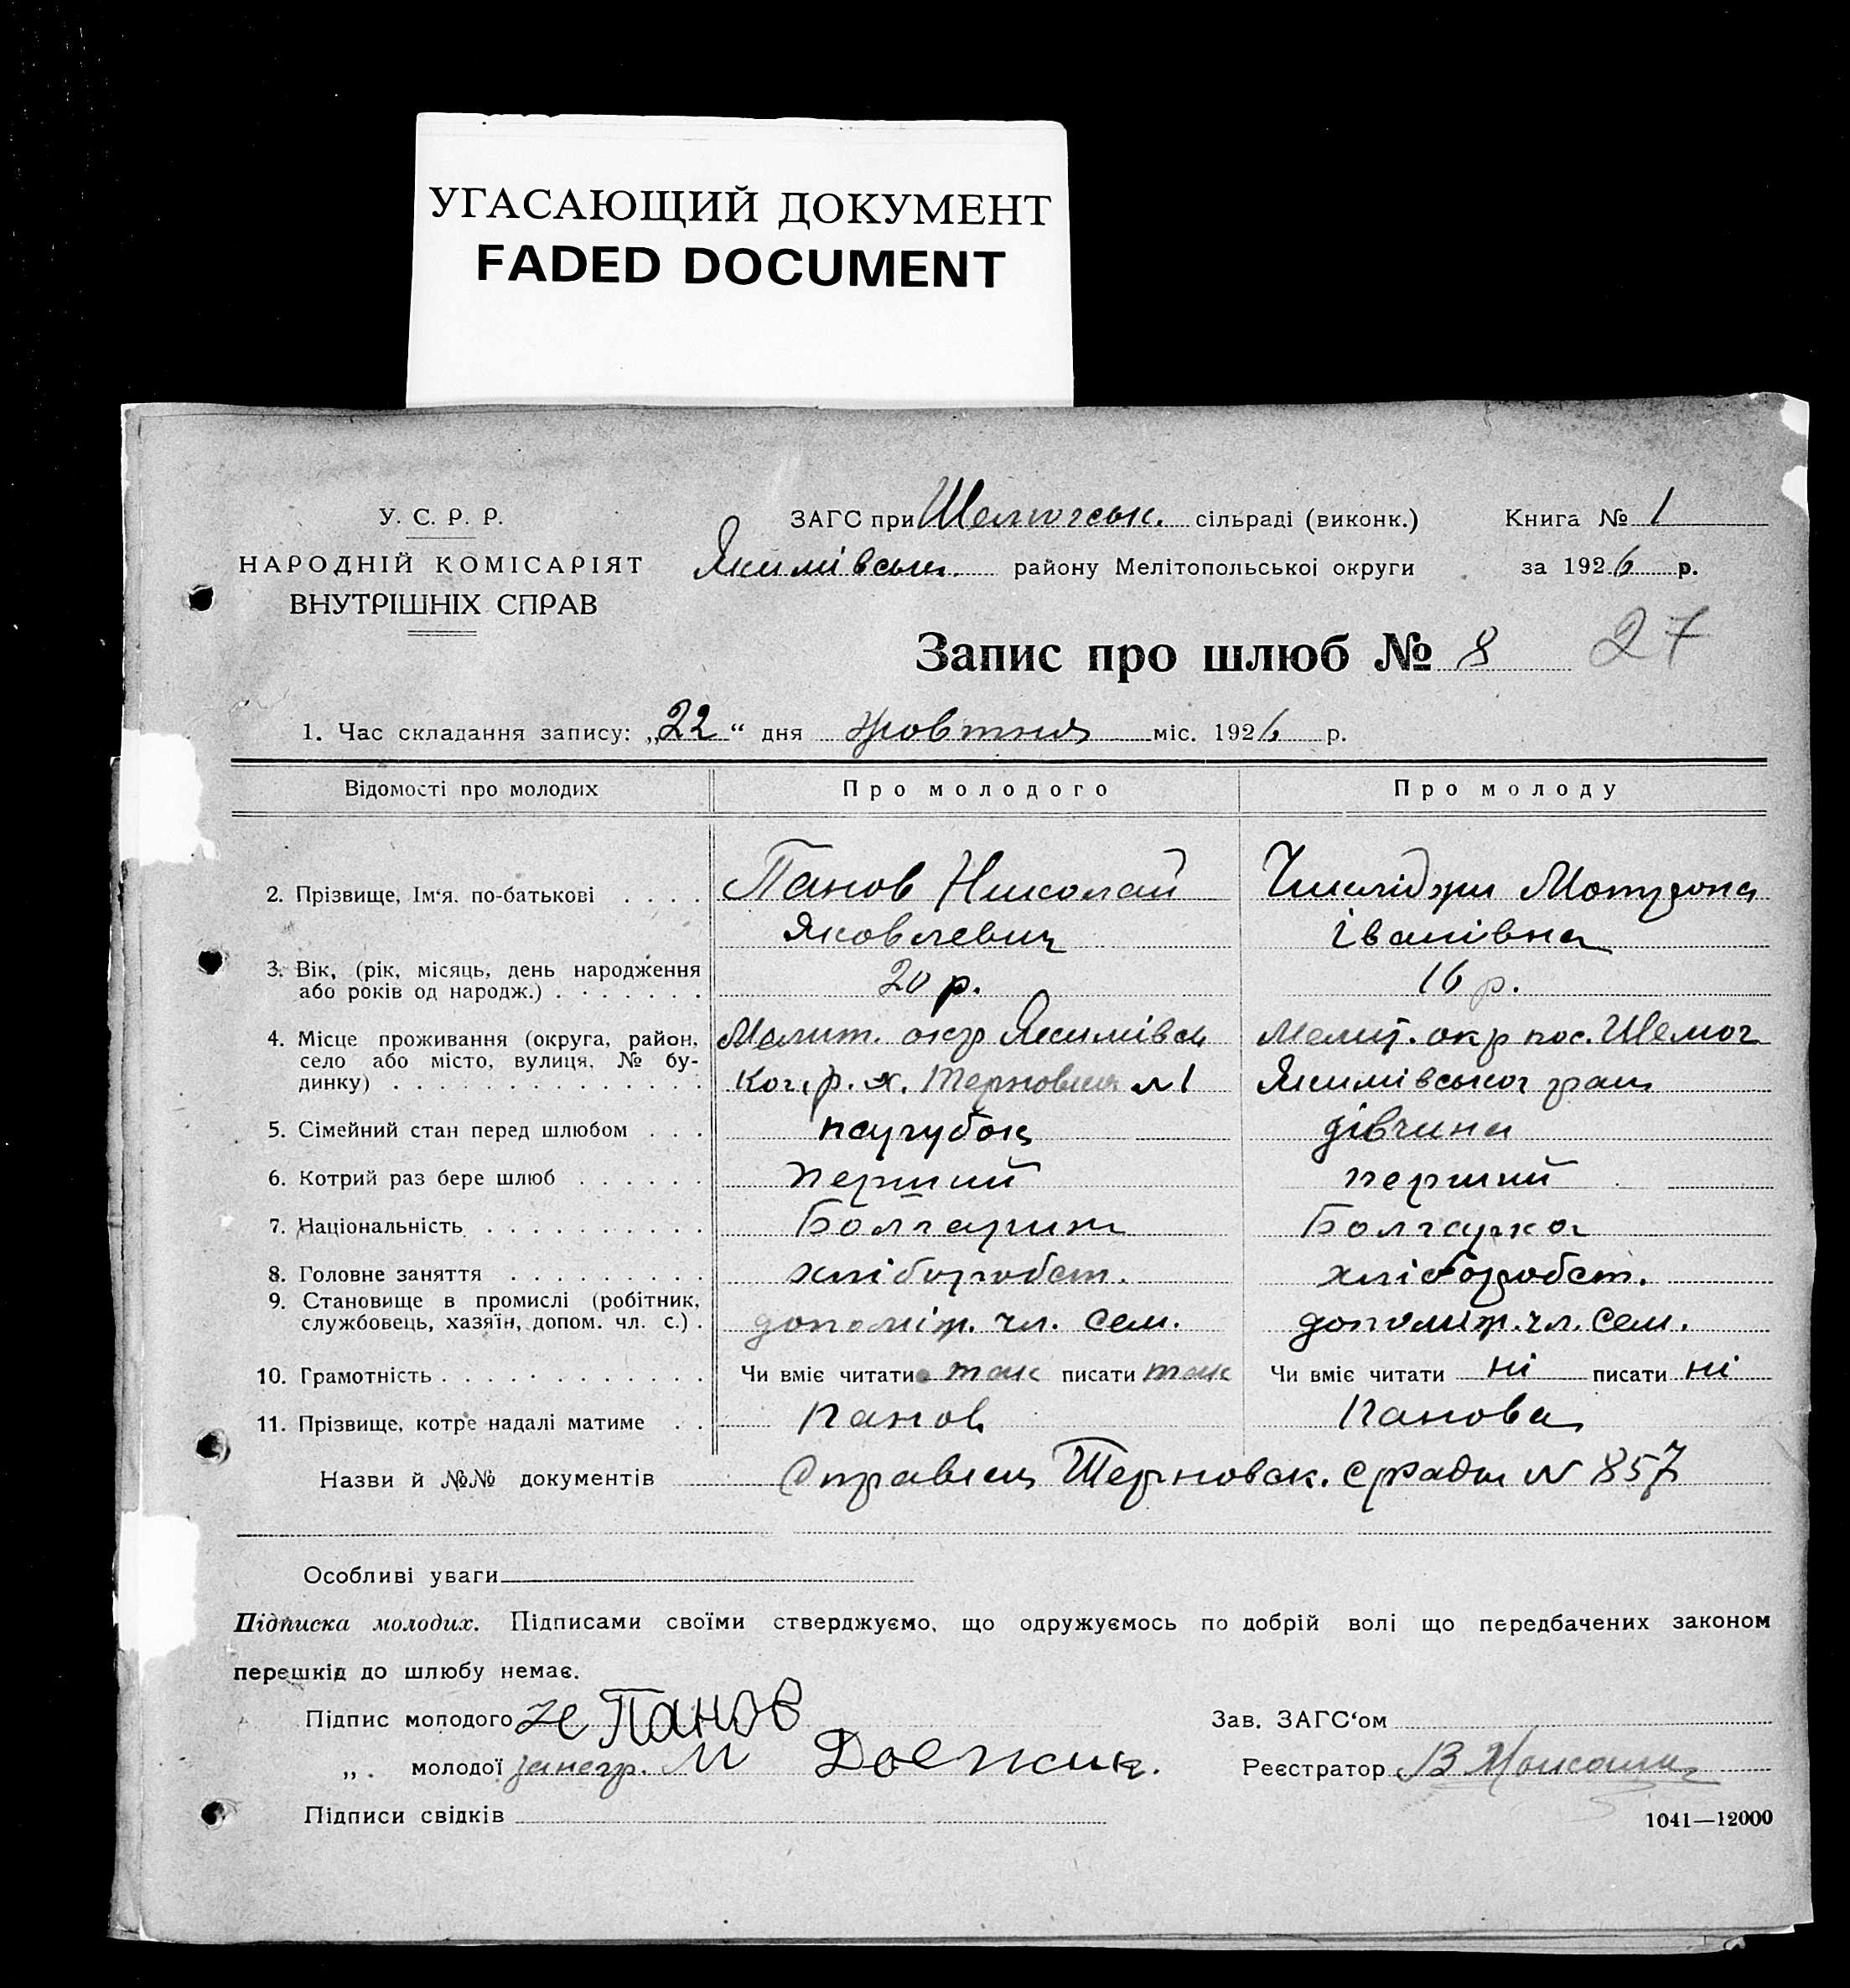 УГАСАЮЩИЙ ДОКУМЕНТ
FADED DOCUMENT
У. С. Р. Р.
НАРОДНІЙ КОМІСАРІЯТ
ВНУТРІШНІХ СПРАВ
ЗАГС при сільраді (виконк.)
Якимівськ. району Мелітопольської округи
Книга № 1
за 1926 р.
Запис про шлюб № 8 27
1. Час складання запису: „22“ дня жовтня міс. 1926 р.
Відомості про молодих Про молодого Про молоду
2. Прізвище, Ім'я. по-батькові . . . . Панов Николай
Яковлевич Іванівна
3. Вік, (рік, місяць, день народження
або років од народж.) . . . . . . . 20 р. 16 р.
4. Місце проживання (округа, район, Мелит. окр Якимівськ Мелит. окр пос. Шемог
село або місто, вулиця, № бу- р. х. Терновка №1 Якимівського
динку) . . . . . . . . . . . . . .
5. Сімейний стан перед шлюбом . . . парубок дівчина
6. Котрий раз бере шлюб . . . . . . перший перший
7. Національність . . . . . . . . . . Болгарин Болгарка
8. Головне заняття . . . . . . . . . хліборобст. хліборобст.
9. Становище в промислі (робітник,
службовець, хазяїн, допом. чл. с.) . допоміж. чл. сем. допоміж. чл. сем.
10. Грамотність . . . . . . . . . . . . Чи вміє читати так писати так Чи вміє читати ні писати ні
11. Прізвище, котре надалі матиме . . Панов Панова
Назви й №№ документів Справка Терновск. с/ради № 857
Особливі уваги
Підписка молодих. Підписами своїми стверджуємо, що одружуємось по добрій волі що передбачених законом
перешкід до шлюбу немає.
Підпис молодого Н Панов
Зав. ЗАГС'ом
„ . молодої
Реєстратор
Підписи свідків
1041—12000